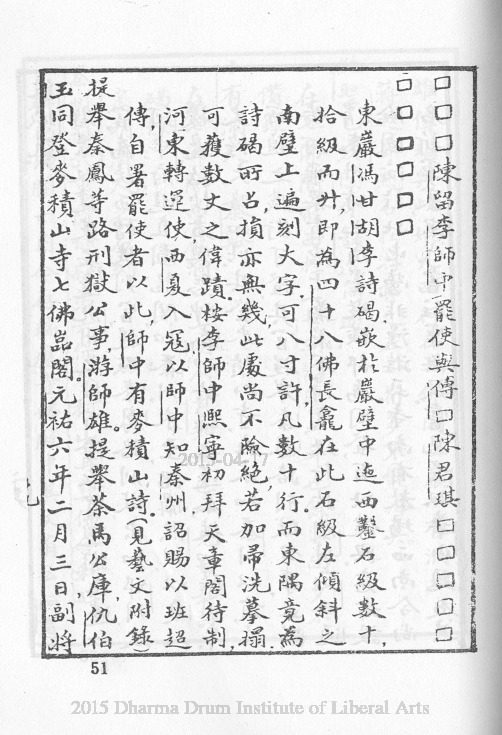 □□□陳留李師中罷使與傅□陳君琪□□□□□□
□□□□□
東巖馮甘胡李詩碣，嵌於巖壁中迤西鑿石級數十，
拾級而升，即為四十八佛長龕在此石級左傾斜之
南壁上遍刻大字，可八寸許，凡數十行。而東隅竟為
詩碣所占，損亦無幾，此處尚不險絕，若加帚洗摹搨，
可獲數丈之偉蹟。按李師中熙寧初拜天章閣待制，
河東轉運使，西夏入寇以師中知秦州，詔賜以班超
傳，自署罷使者以此，師中有麥積山詩（見藝文附錄）
提舉秦鳳等路刑獄公事，游師雄。提舉茶馬公庫，仇伯
玉同登麥積山寺七佛嵓閣。元祐六年二月三日，副將
51
2015-04-17
2015 Dharma Drum Institute of Liberal Arts